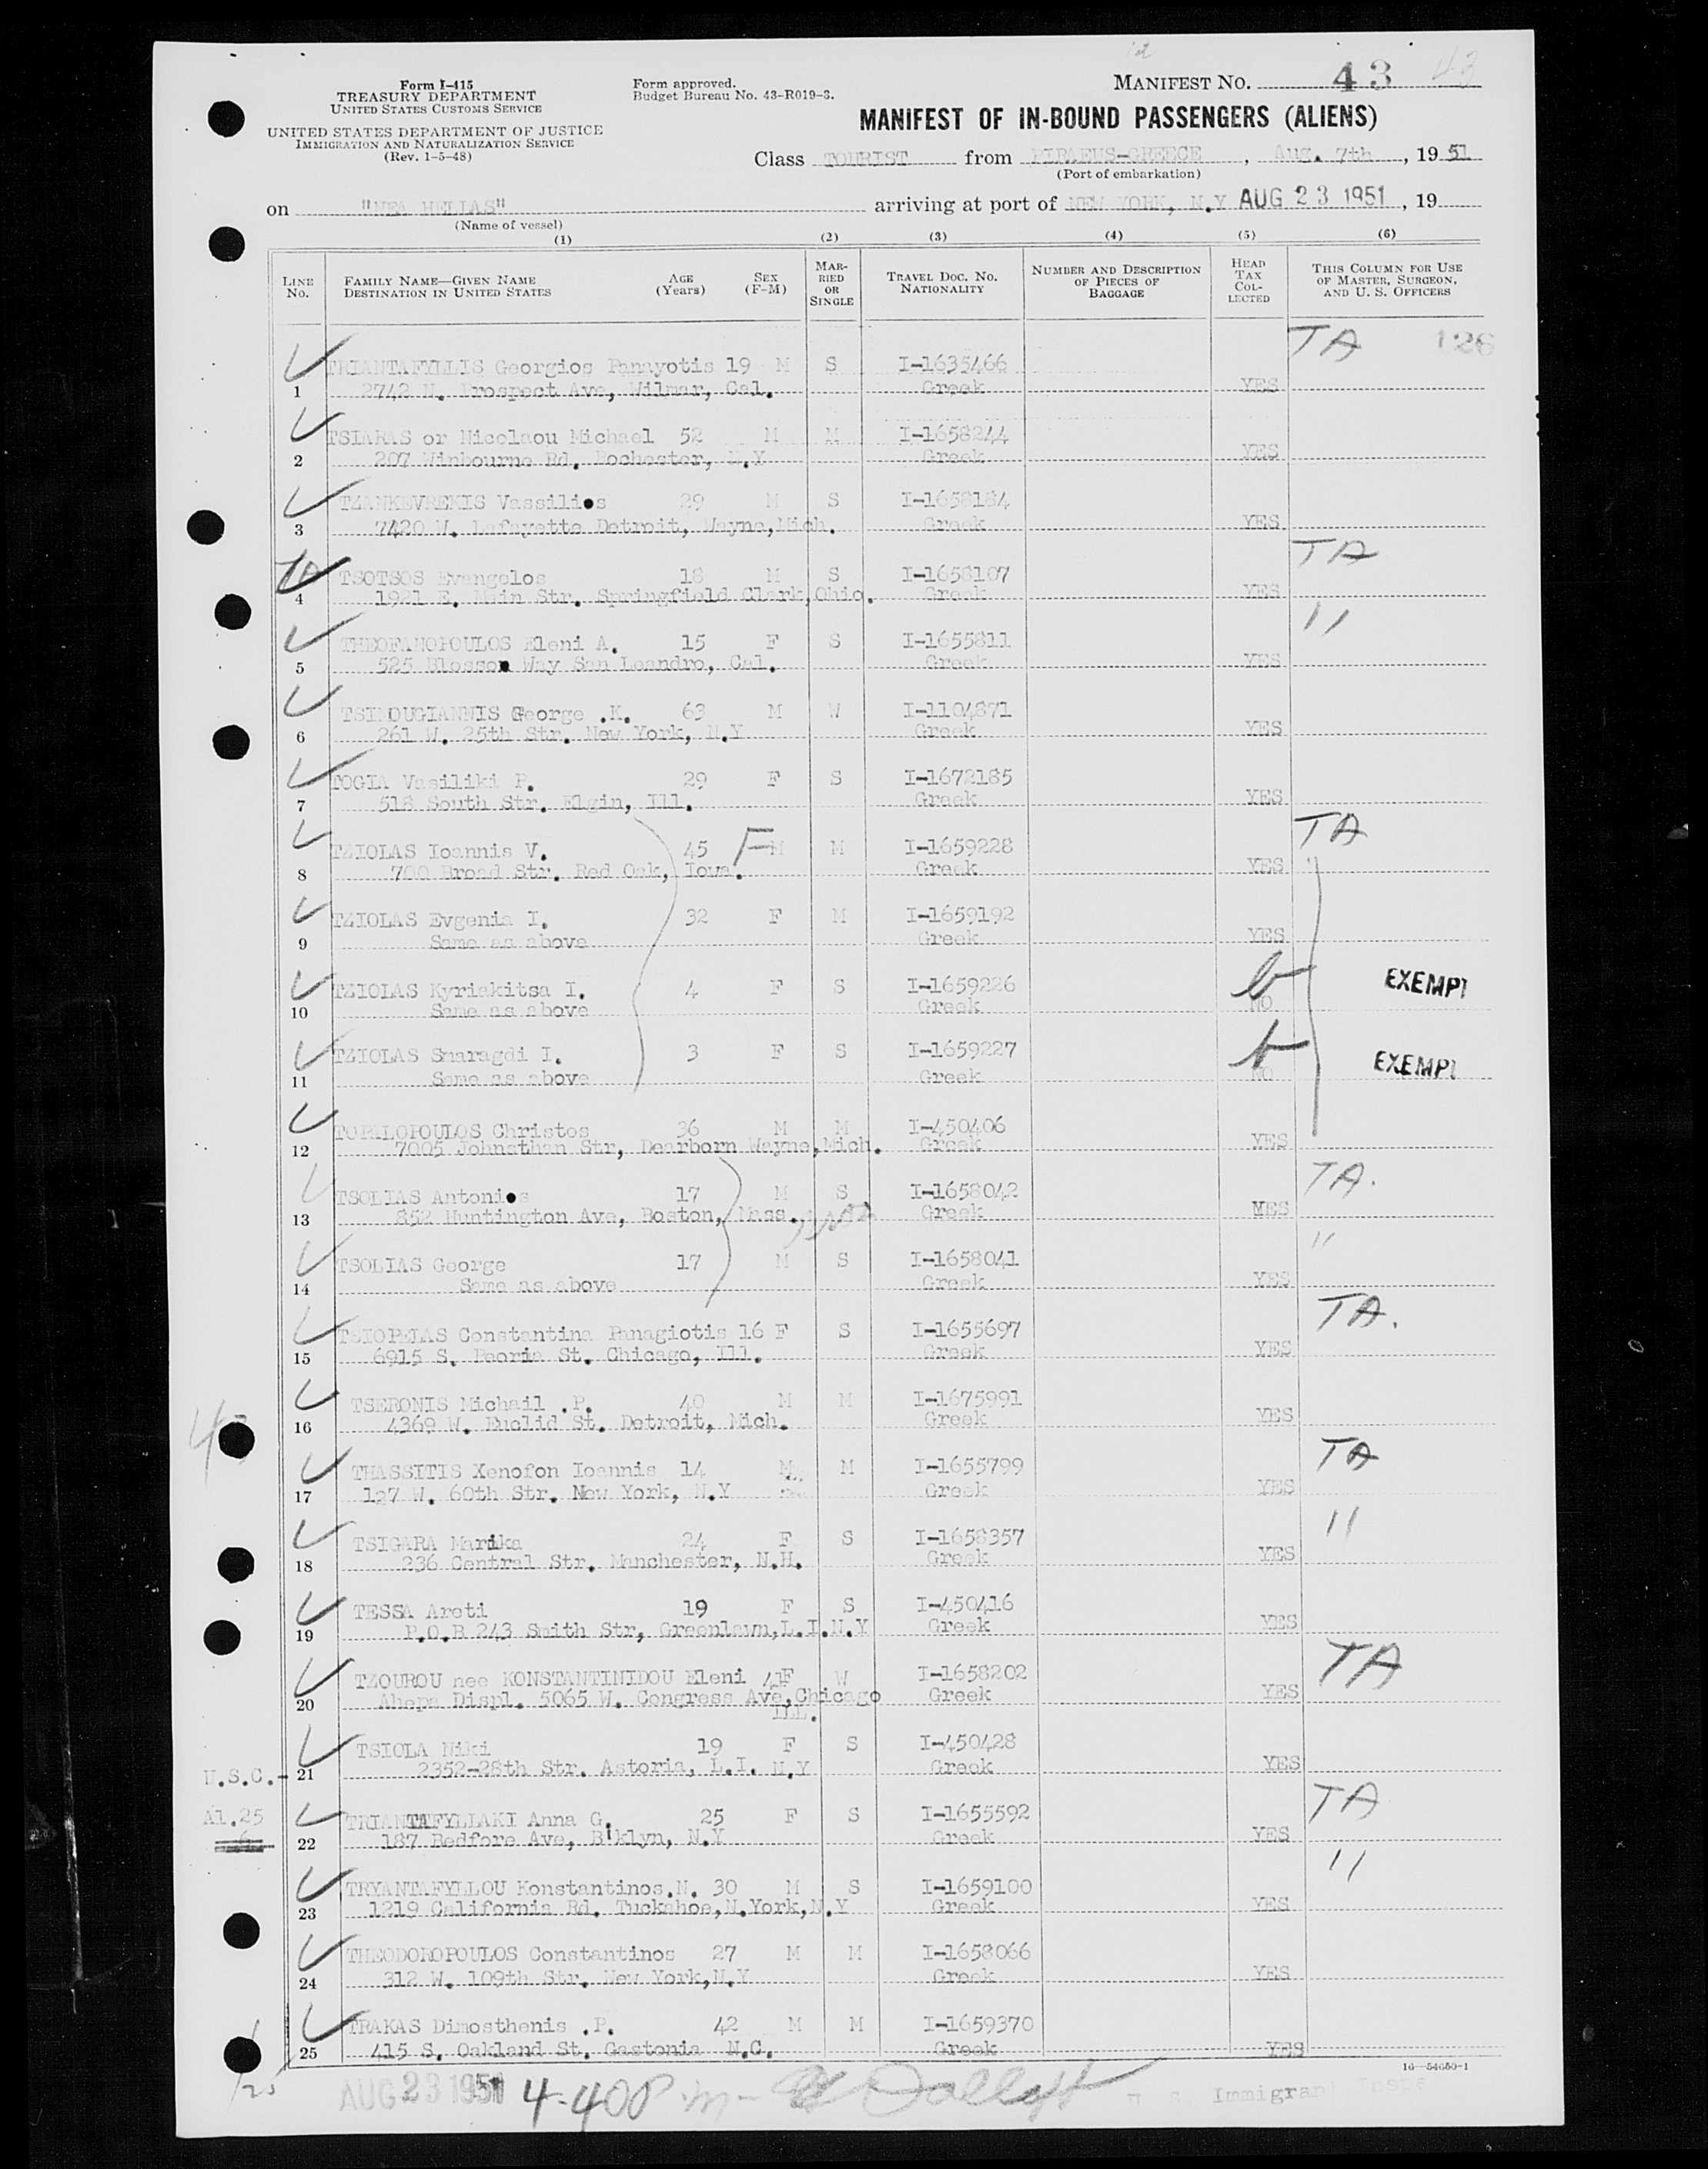 Form I-415
TREASURY DEPARTMENT
UNITED STATES CUSTOMS SERVICE
UNITED STATES DEPARTMENT OF JUSTICE
IMMIGRATION AND NATURALIZATION SERVICE
(Rev. 1-5-48)
Form approved.
Budget Bureau No. 43-R019-3.
MANIFEST NO. 43 43
MANIFEST OF IN-BOUND PASSENGERS (ALIENS)
Class TOURIST from PIRAEUS-GREECE, Aug. 7th, 19 51
(Port of embarkation)
on "NEA HELLAS" arriving at port of NEW YORK, N.Y AUG 23 1951, 19
(Name of vessel)
(1) (2) (3) (4) (5) (6)
LINE NO. FAMILY NAME—GIVEN NAME DESTINATION IN UNITED STATES AGE (Years) SEX (F-M) MARRIED OR SINGLE TRAVEL DOC. NO. NATIONALITY NUMBER AND DESCRIPTION OF PIECES OF BAGGAGE HEAD TAX COLLECTED THIS COLUMN FOR USE OF MASTER, SURGEON, AND U. S. OFFICERS
TRIANTAFYLLIS Georgios Panayotis 19 M S I-1635466 TA 126
1 2742 N. Prospect Ave, Wilmar, Cal. Greek YES
TSIARAS or Nicolaou Michael 52 M M I-1658244
2 207 Winbourne Rd. Rochester, N.Y Greek YES
TZANKEVREKIS Vassilios 29 M S I-1658184
3 7420 W. Lafayette Detroit, Wayne, Mich. Greek YES
TA TSOTSOS Evangelos 18 M S I-1658107 TA
4 1921 E. Main Str. Springfield Clark, Ohio. Greek YES
THEOFANOPOULOS Eleni A. 15 F S I-1655811 "
5 525 Blossom Way San Leandro, Cal. Greek YES
TSIMOUGIANNIS George .K. 63 M W I-1104871
6 261 W. 25th Str. New York, N.Y Greek YES
TOGIA Vasiliki P. 29 F S I-1672185
7 518 South Str. Elgin, Ill. Greek YES
TZIOLAS Ioannis V. 45 F M M I-1659228 TA
8 700 Broad Str. Red Oak, Iowa. Greek YES
TZIOLAS Evgenia I. 32 F M I-1659192
9 Same as above Greek YES
TZIOLAS Kyriakitsa I. 4 F S I-1659226 EXEMPT
10 Same as above Greek NO
TZIOLAS Smaragdi I. 3 F S I-1659227 EXEMPT
11 Same as above Greek NO
Christos 36 M M I-450406
12 7005 Johnathan Str, Dearborn Wayne, Mich. Greek YES
TSOLIAS Antonios 17 M S I-1658042 TA.
13 852 Huntington Ave, Boston, Mass. Greek YES
TSOLIAS George 17 M S I-1658041 "
14 Same as above Greek YES
Constantina Panagiotis 16 F S I-1655697 TA.
15 6915 S. Peoria St. Chicago, Ill. Greek YES
TSERONIS Michail .P. 40 M M I-1675991
16 4369 W. Euclid St. Detroit, Mich. Greek YES
43
THASSITIS Xenofon Ioannis 14 M M I-1655799 TA
17 127 W. 60th Str. New York, N.Y Greek YES
TSIGARA Marika 24 F S I-1658357 "
18 236 Central Str. Manchester, N.H. Greek YES
TESSA Areti 19 F S I-450416
19 P.O.B 243 Smith Str, Greenlawn, L.I. N.Y Greek YES
TZOUROU nee KONSTANTINIDOU Eleni 41 F W I-1658202 TA
20 Ahepa Displ. 5065 W. Congress Ave, Chicago Greek YES
ILL.
TSIOLA Niki 19 F S I-450428
U.S.C.- 21 2352-28th Str. Astoria, L.I. N.Y Greek YES
Al.25 TRIANTAFYLLAKI Anna G. 25 F S I-1655592 TA
22 187 Bedfore Ave, B'klyn, N.Y Greek YES
TRYANTAFYLLOU Konstantinos.N. 30 M S I-1659100 "
23 1219 California Rd. Tuckahoe, N.York, N.Y Greek YES
THEODOROPOULOS Constantinos 27 M M I-1658066
24 312 W. 109th Str. New York, N.Y Greek YES
TRAKAS Dimosthenis .P. 42 M M I-1659370
25 415 S. Oakland St. Gastonia N.C. Greek YES
16—54650-1
AUG 23 1951 4-40 P.m- Immigrant